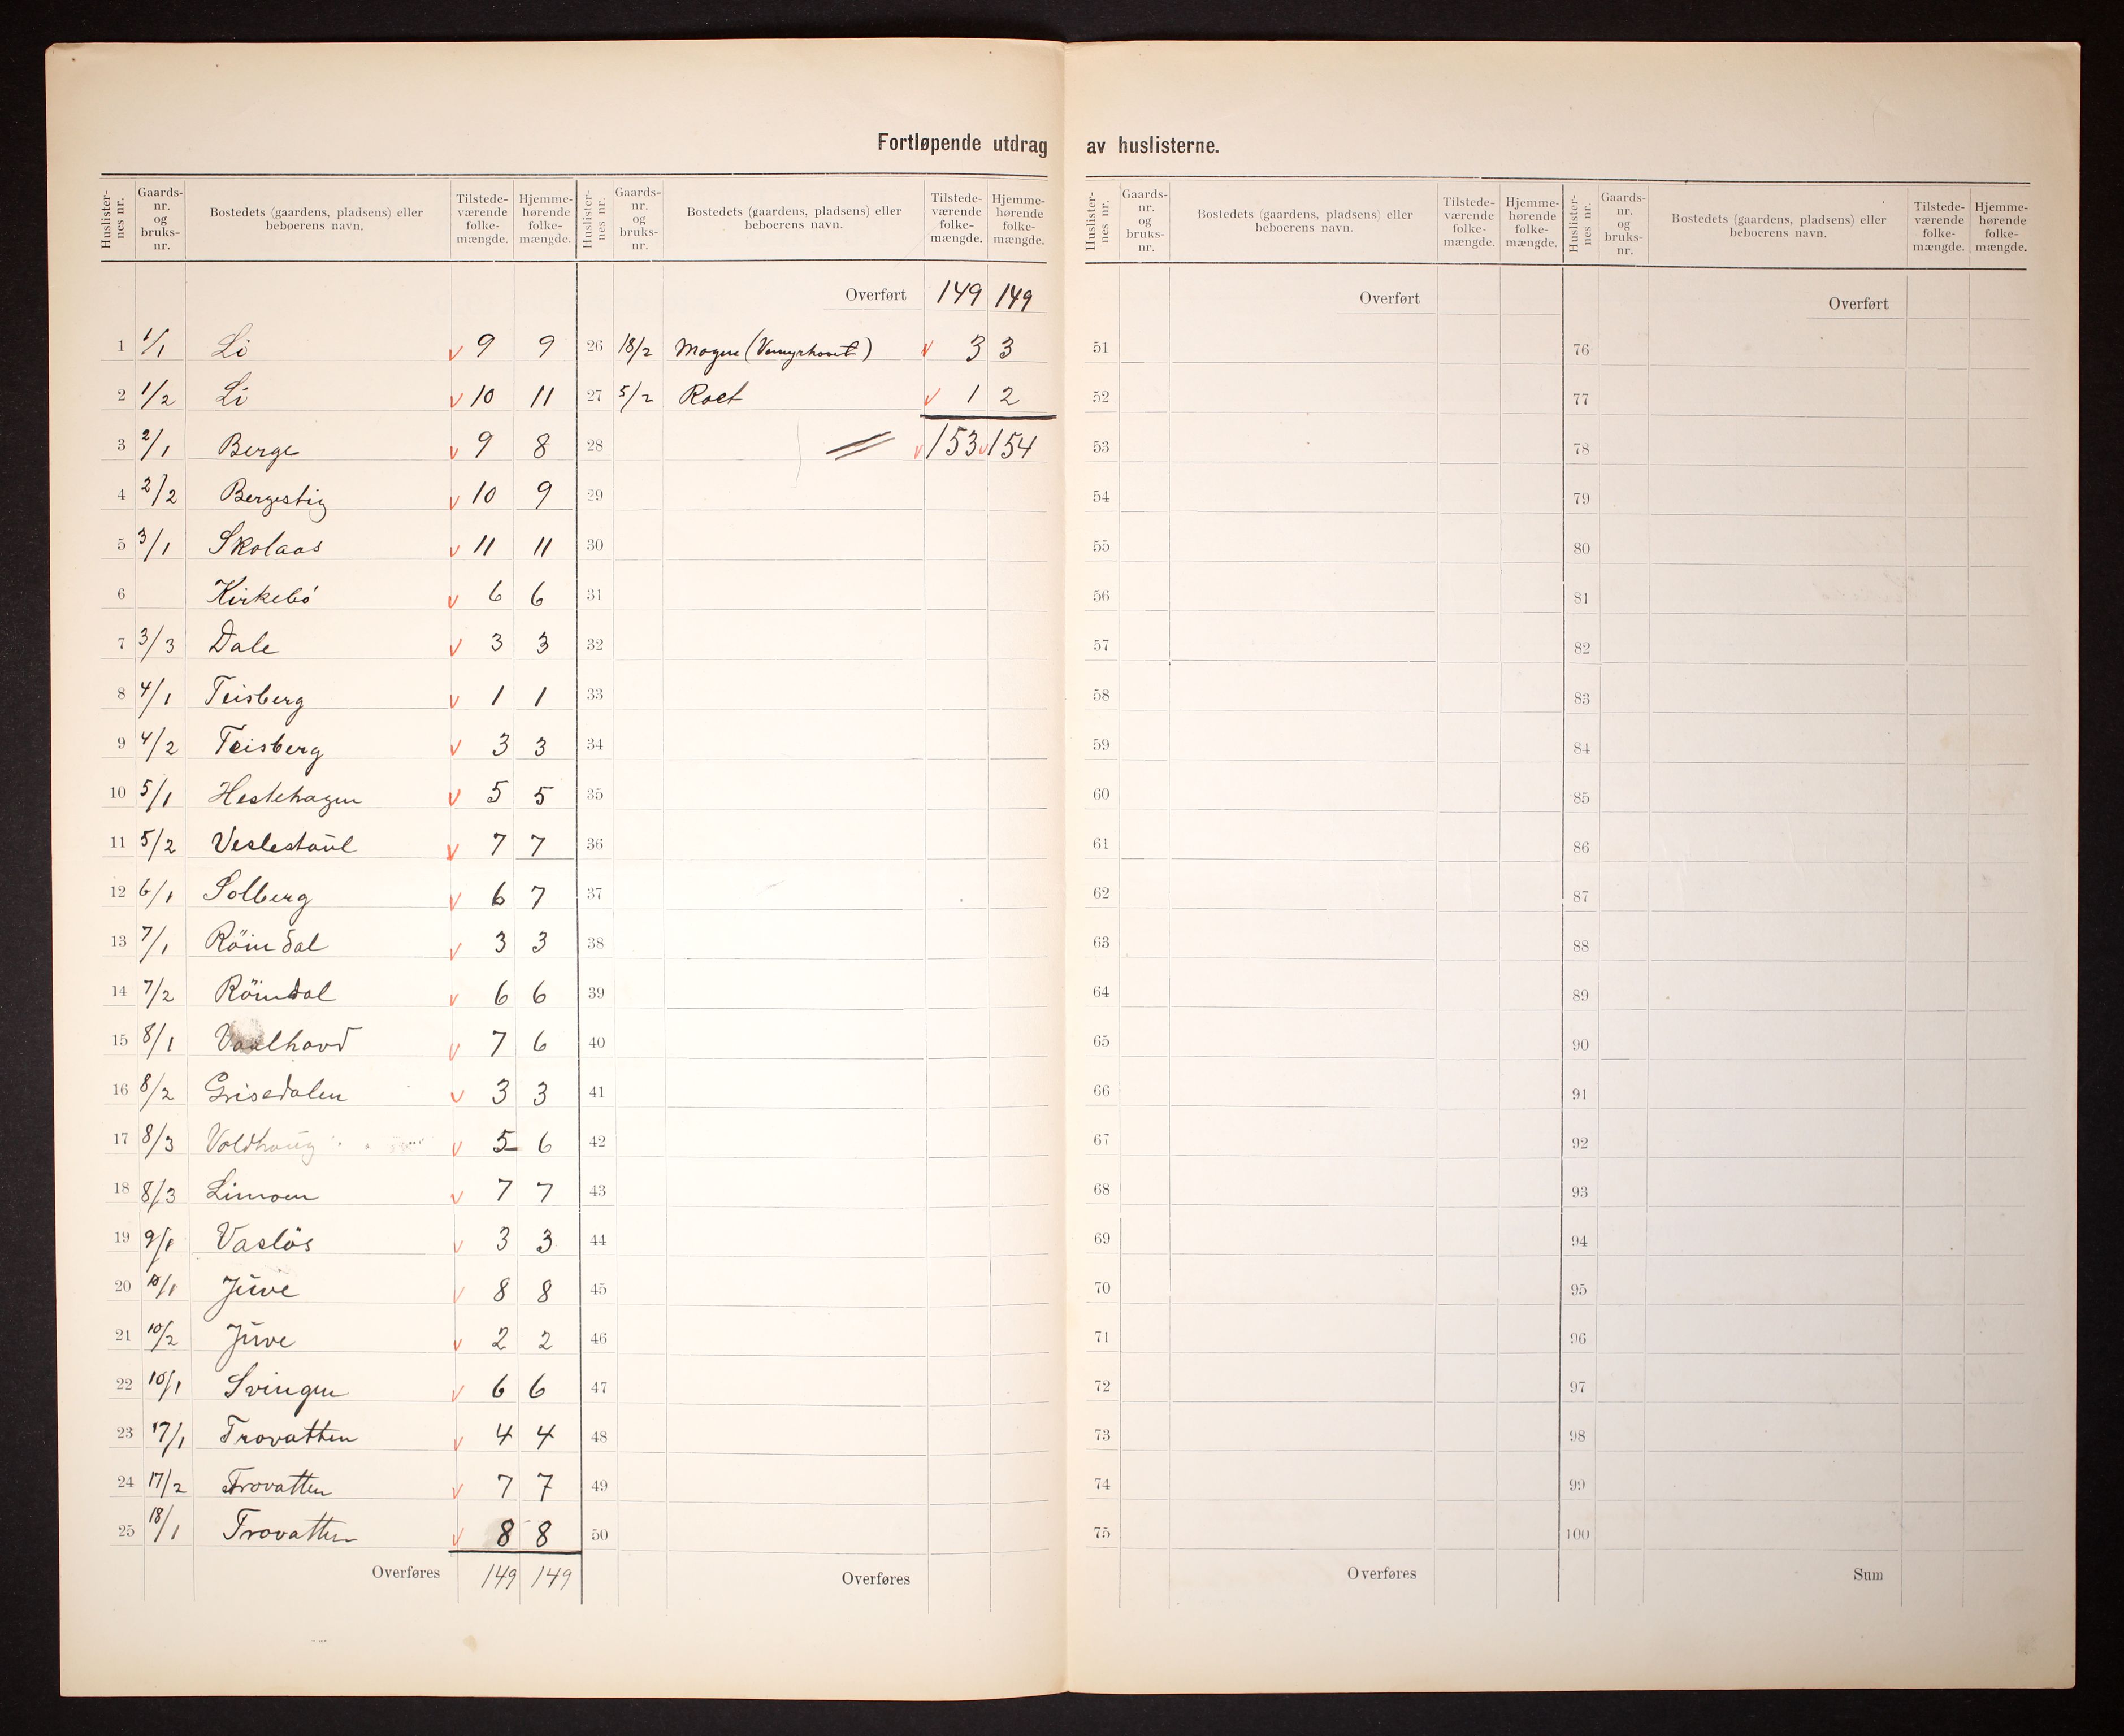 Fortløpende utdrag av huslisterne.
Huslister-nes nr. Gaards-nr. og bruks-nr. Bostedets (gaardens, pladsens) eller beboerens navn. Tilstede-værende folke-mængde. Hjemme-hørende folke-mængde.
1 1/1 Li v 9 9
2 1/2 Li v 10 11
3 2/1 Berge v 9 8
4 2/2 Bergestig v 10 9
5 3/1 Skolaas v 11 11
6 Kirkebö v 6 6
7 3/3 Dale v 3 3
8 4/1 Teisberg v 1 1
9 4/2 Teisberg v 3 3
10 5/1 Hestehagen v 5 5
11 5/2 Veslestaúl v 7 7
12 6/1 Solberg v 6 7
13 7/1 Röindal v 3 3
14 7/2 Röindal v 6 6
15 8/1 Vaalhovd v 7 6
16 8/2 Grisedalen v 3 3
17 8/3 Voldhoúg v 5 6
18 8/3 Limoen v 7 7
19 9/1 Vaslös v 3 3
20 10/1 Júve v 8 8
21 10/2 Júve v 2 2
22 10/1 Svingen v 6 6
23 17/1 Trovatten v 4 4
24 17/2 Trovatten v 7 7
25 18/1 Trovatten v 8 8
Overføres 149 149
Huslister-nes nr. Gaards-nr. og bruks-nr. Bostedets (gaardens, pladsens) eller beboerens navn. Tilstede-værende folke-mængde. Hjemme-hørende folke-mængde.
Overført 149 149
26 18/2 Mogen v 3 3
27 5/2 Roet v 1 2
28 v 153 v 154
29
30
31
32
33
34
35
36
37
38
39
40
41
42
43
44
45
46
47
48
49
50
Overføres
Huslister-nes nr. Gaards-nr. og bruks-nr. Bostedets (gaardens, pladsens) eller beboerens navn. Tilstede-værende folke-mængde. Hjemme-hørende folke-mængde.
Overført
51
52
53
54
55
56
57
58
59
60
61
62
63
64
65
66
67
68
69
70
71
72
73
74
75
Overføres
Huslister-nes nr. Gaards-nr. og bruks-nr. Bostedets (gaardens, pladsens) eller beboerens navn. Tilstede-værende folke-mængde. Hjemme-hørende folke-mængde.
Overført
76
77
78
79
80
81
82
83
84
85
86
87
88
89
90
91
92
93
94
95
96
97
98
99
100
Sum